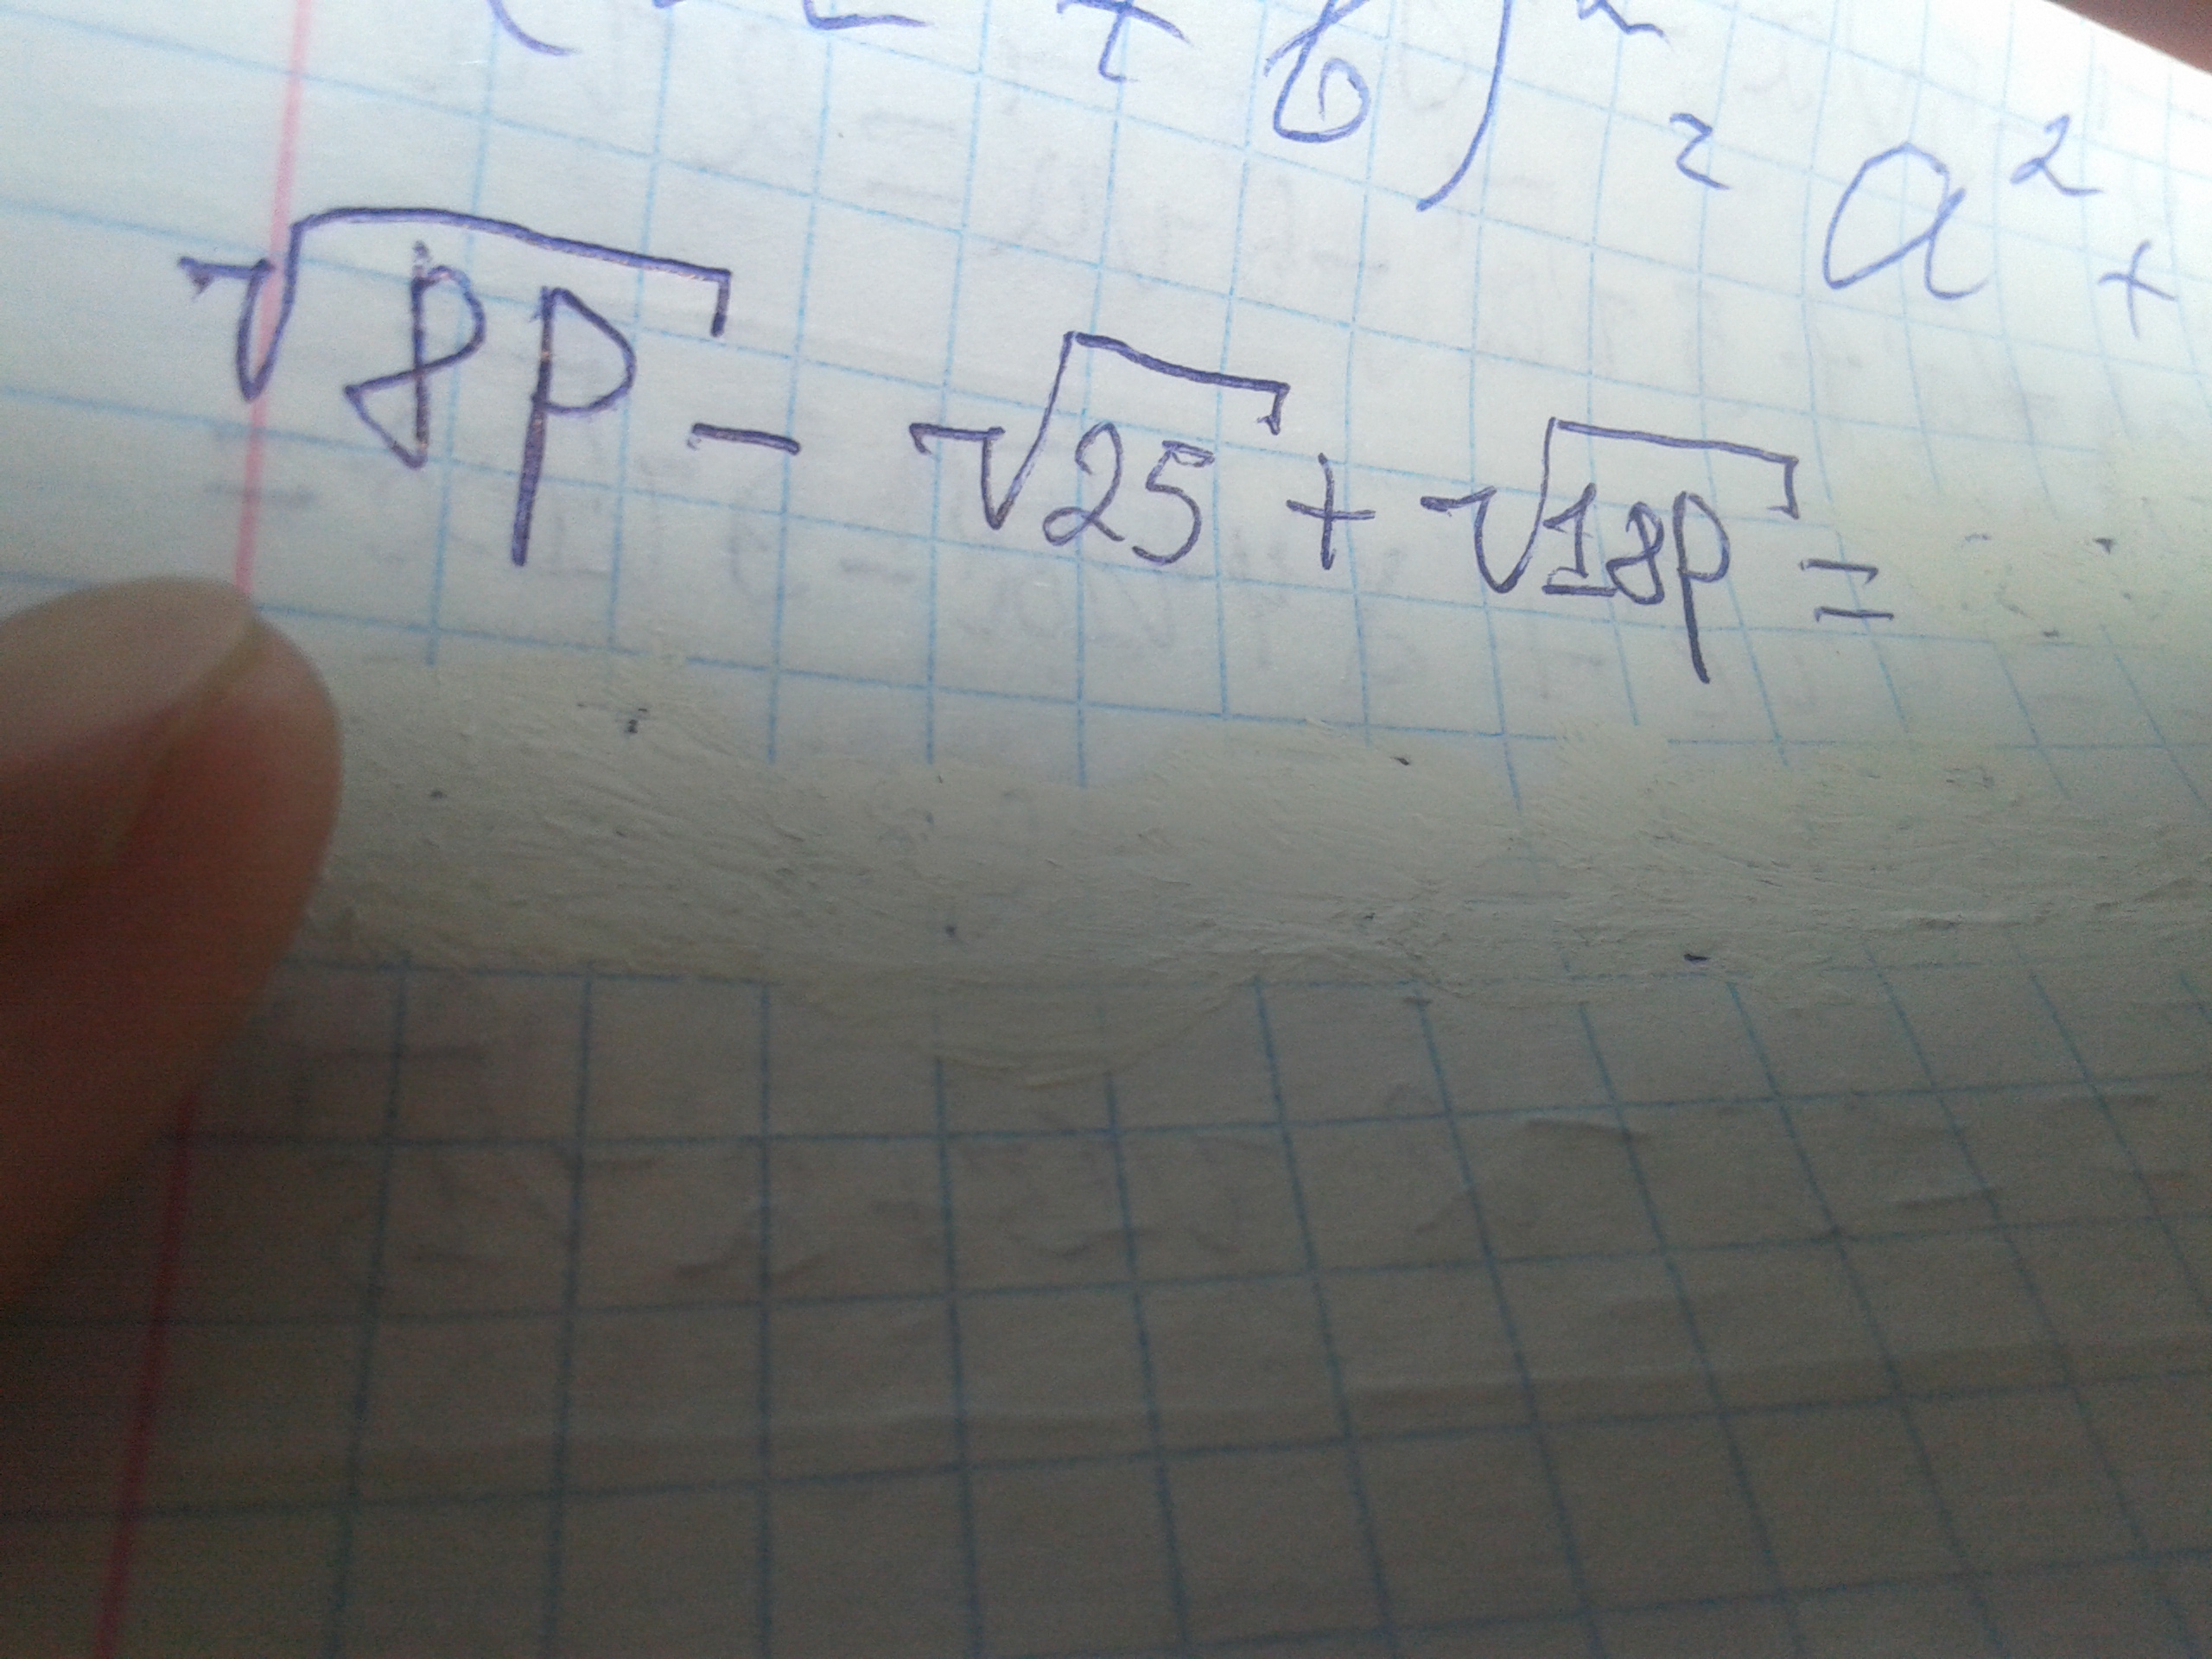 + b)² = a² +
√8p - √25 + √18p =